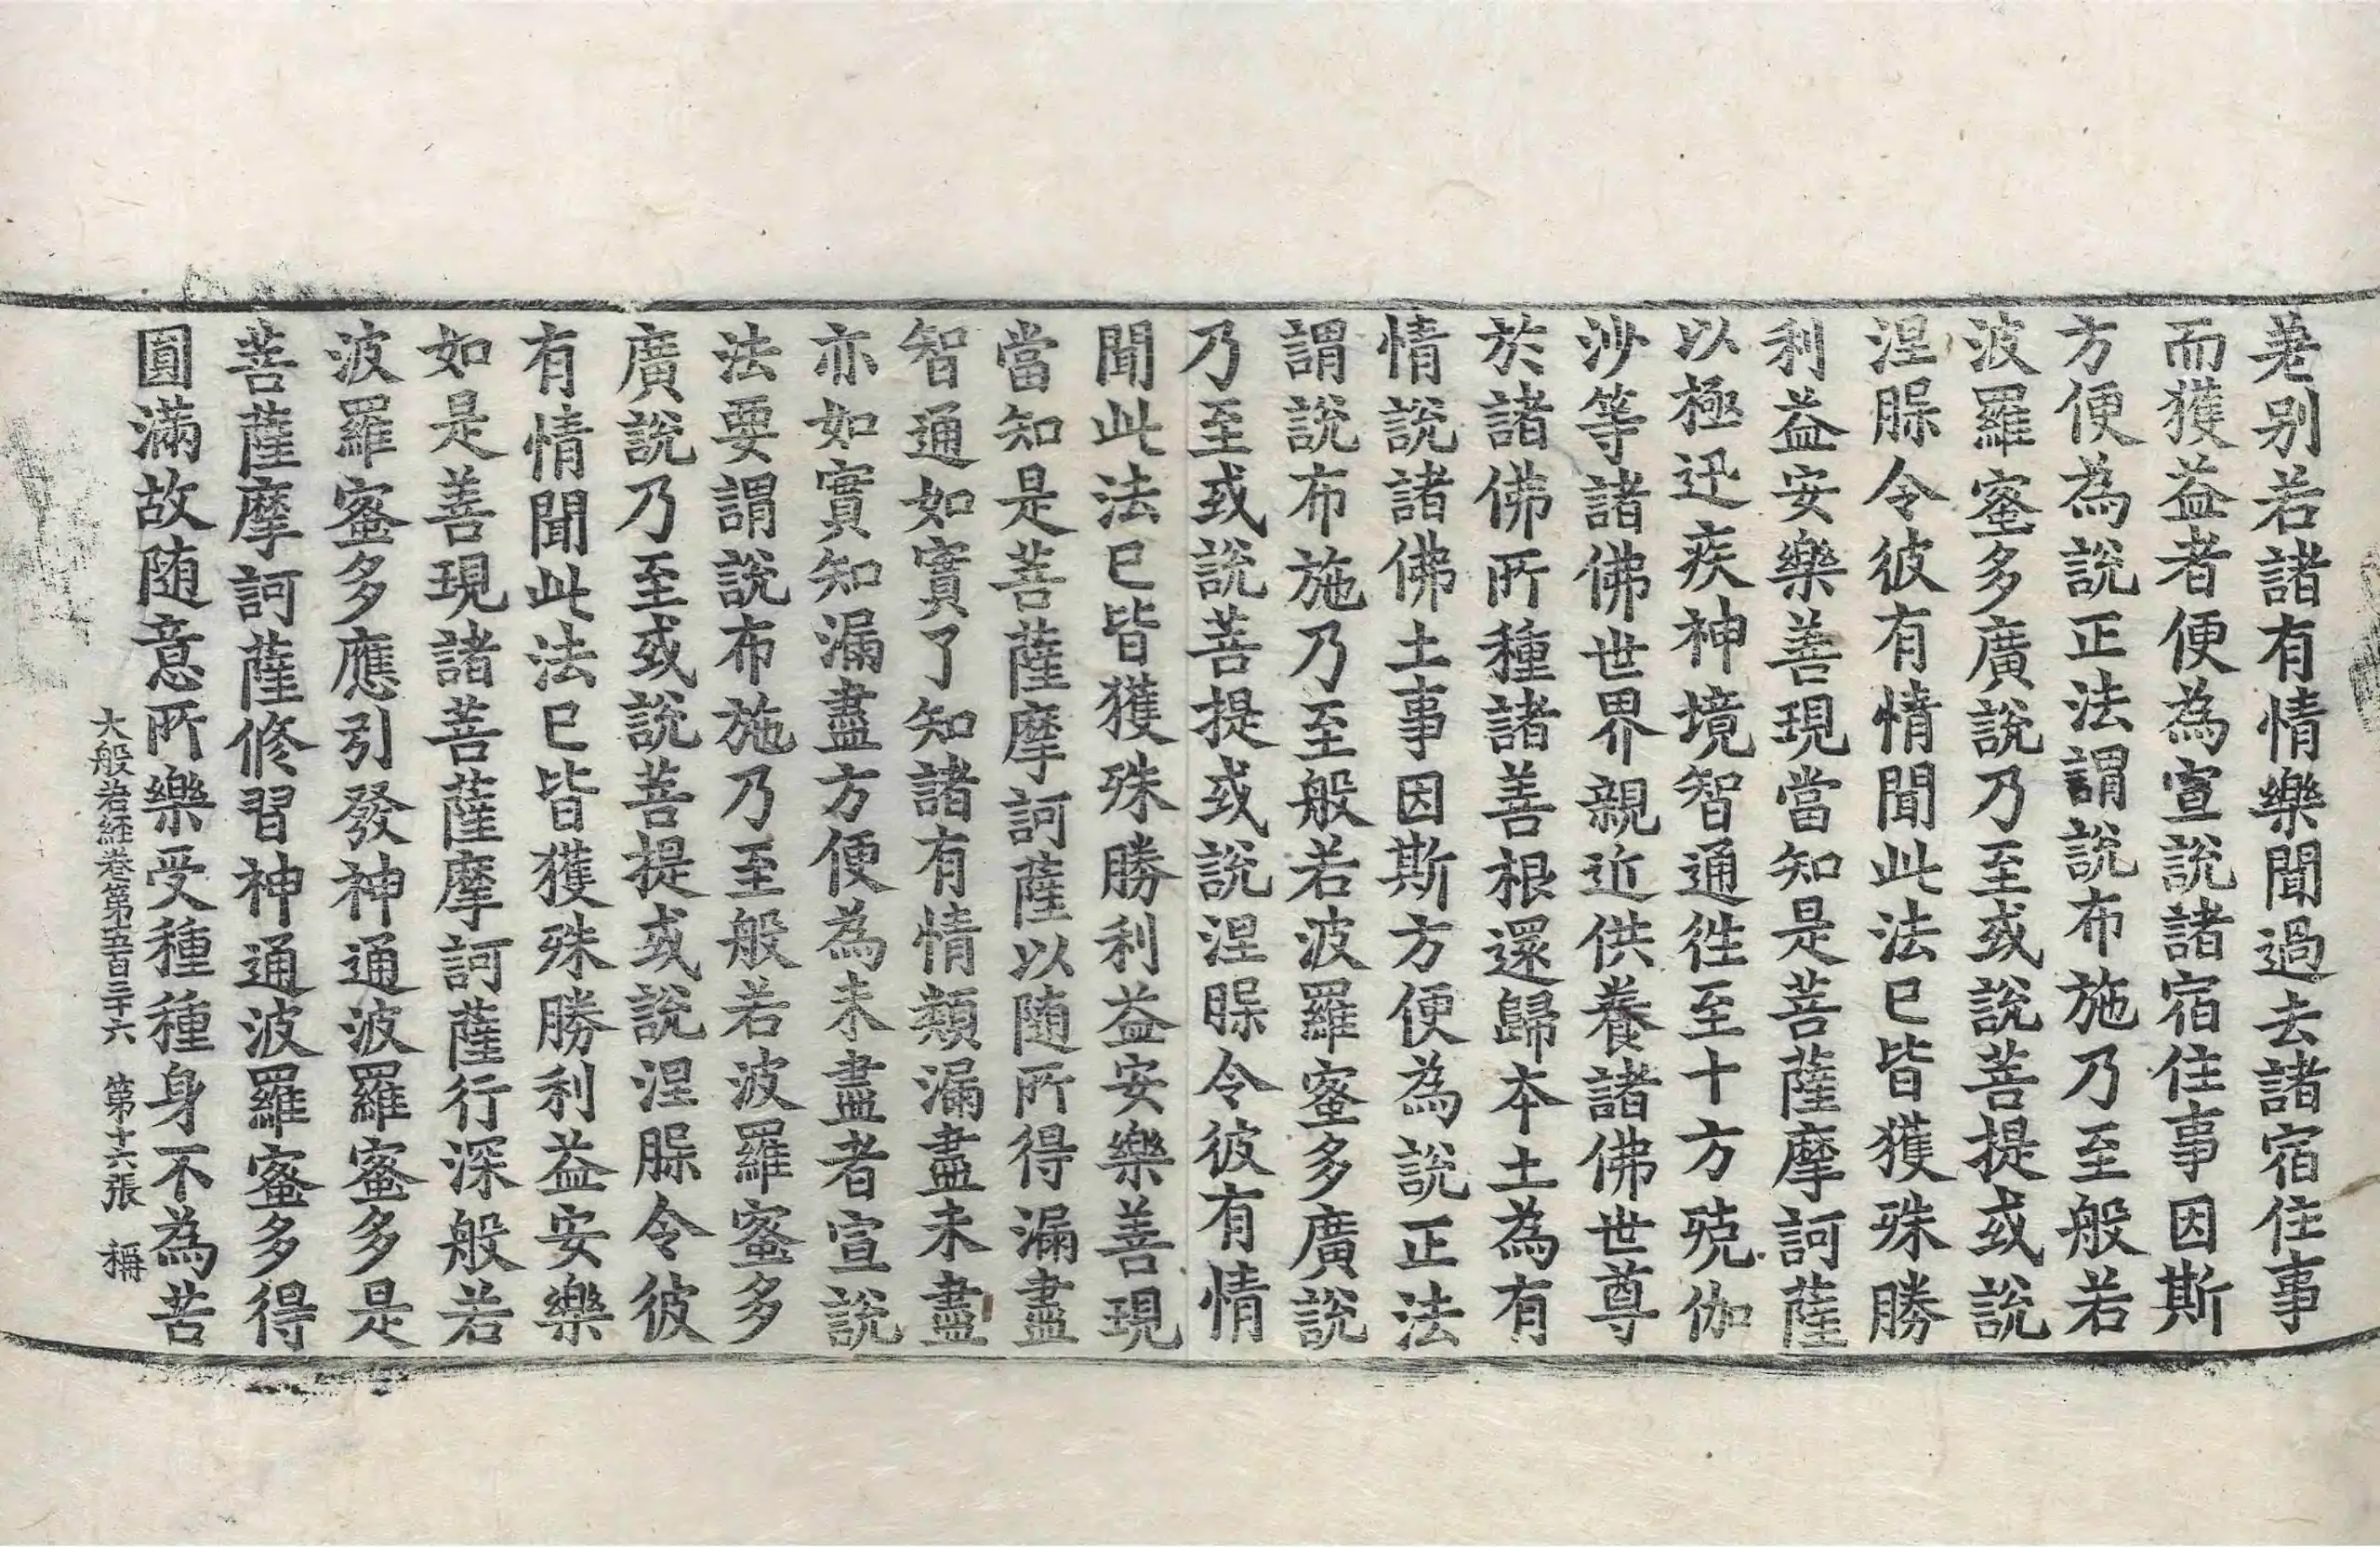 差別若諸有情樂聞過去諸宿住事
而獲益者便為宣說諸宿住事因斯
方便為說正法謂說布施乃至般若
波羅蜜多廣說乃至或說菩提或說
涅槃令彼有情聞此法已皆獲殊勝
利益安樂善現當知是菩薩摩訶薩
以極迅疾神境智通往至十方殑伽
沙等諸佛世界親近供養諸佛世尊
於諸佛所種諸善根還歸本土為有
情說諸佛土事因斯方便為說正法
謂說布施乃至般若波羅蜜多廣說
乃至或說菩提或說涅槃令彼有情
聞此法已皆獲殊勝利益安樂善現
當知是菩薩摩訶薩以随所得漏盡
智通如實了知諸有情類漏盡未盡
亦如實知漏盡方便為未盡者宣說
法要謂說布施乃至般若波羅蜜多
廣說乃至或說菩提或說涅槃令彼
有情聞此法已皆獲殊勝利益安樂
如是善現諸菩薩摩訶薩行深般若
波羅蜜多應引發神通波羅蜜多是
菩薩摩訶薩修習神通波羅蜜多得
圓滿故随意所樂受種種身不為苦
大般若經卷第五百三十六 第十六張 稱